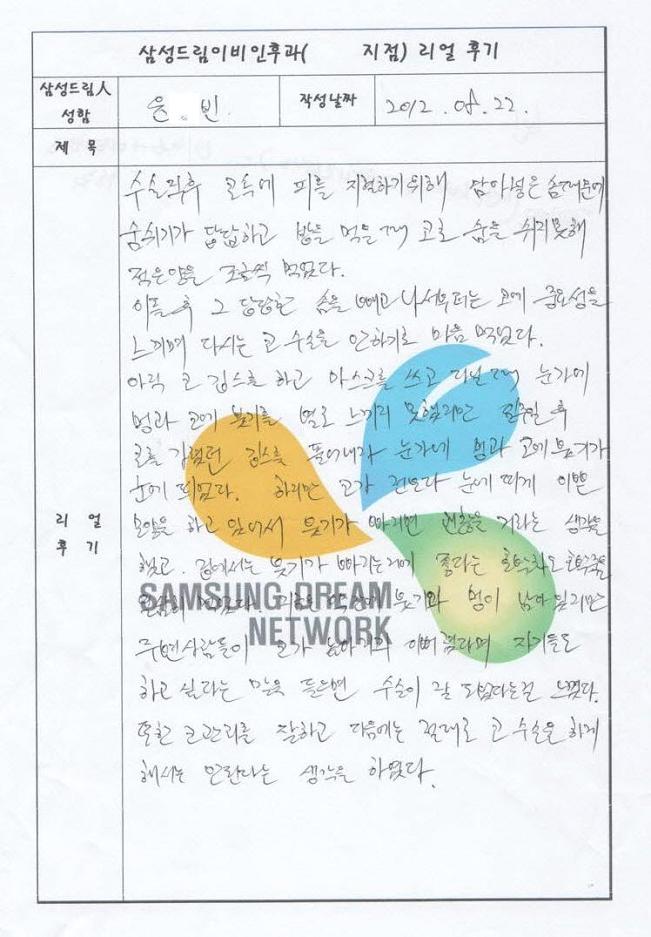 삼성드림이비인후과( 지점) 리얼 후기
삼성드림人
성함
윤 빈
작성날짜
2012. 08. 22.
제 목
리 얼
후 기
수술직후 코속에 피를 지혈하기위해 담아넣은 솜때문에
숨쉬기가 답답하고 밥을 먹을때 코로 숨을 쉬지못해
적은양을 조금씩 먹었다.
이틀 후 그 답답한 솜을 빼고 나서부터는 코에 중요성을
느끼며 다시는 코 수술을 안하기로 마음 먹었다.
아직 코 깁스를 하고 마스크를 쓰고 다닐때 눈가에
멍과 코에 붓기를 별로 느끼지 못했지만 일주일 후
코를 감쌌던 깁스를 풀어내자 눈가에 멍과 코에 붓기가
눈에 띄었다. 하지만 코가 전보다 눈에 띄게 이쁜
모양을 하고 있어서 붓기가 빠지면 괜찮을 거라는 생각을
했고. 집에서는 붓기가 빠지는거에 좋다는 호박차도 호박죽을
먹었다. 붓기와 멍이 남아 있지만
주변사람들이 코가 높아지고 이뻐졌다며 자기들도
하고 싶다는 말을 들으면 수술이 잘 되었다는걸 느꼈다.
또한 코관리를 잘하고 다음에는 절대로 코 수술을 하게
해서는 안된다는 생각을 하였다.
SAMSUNG DREAM
NETWORK